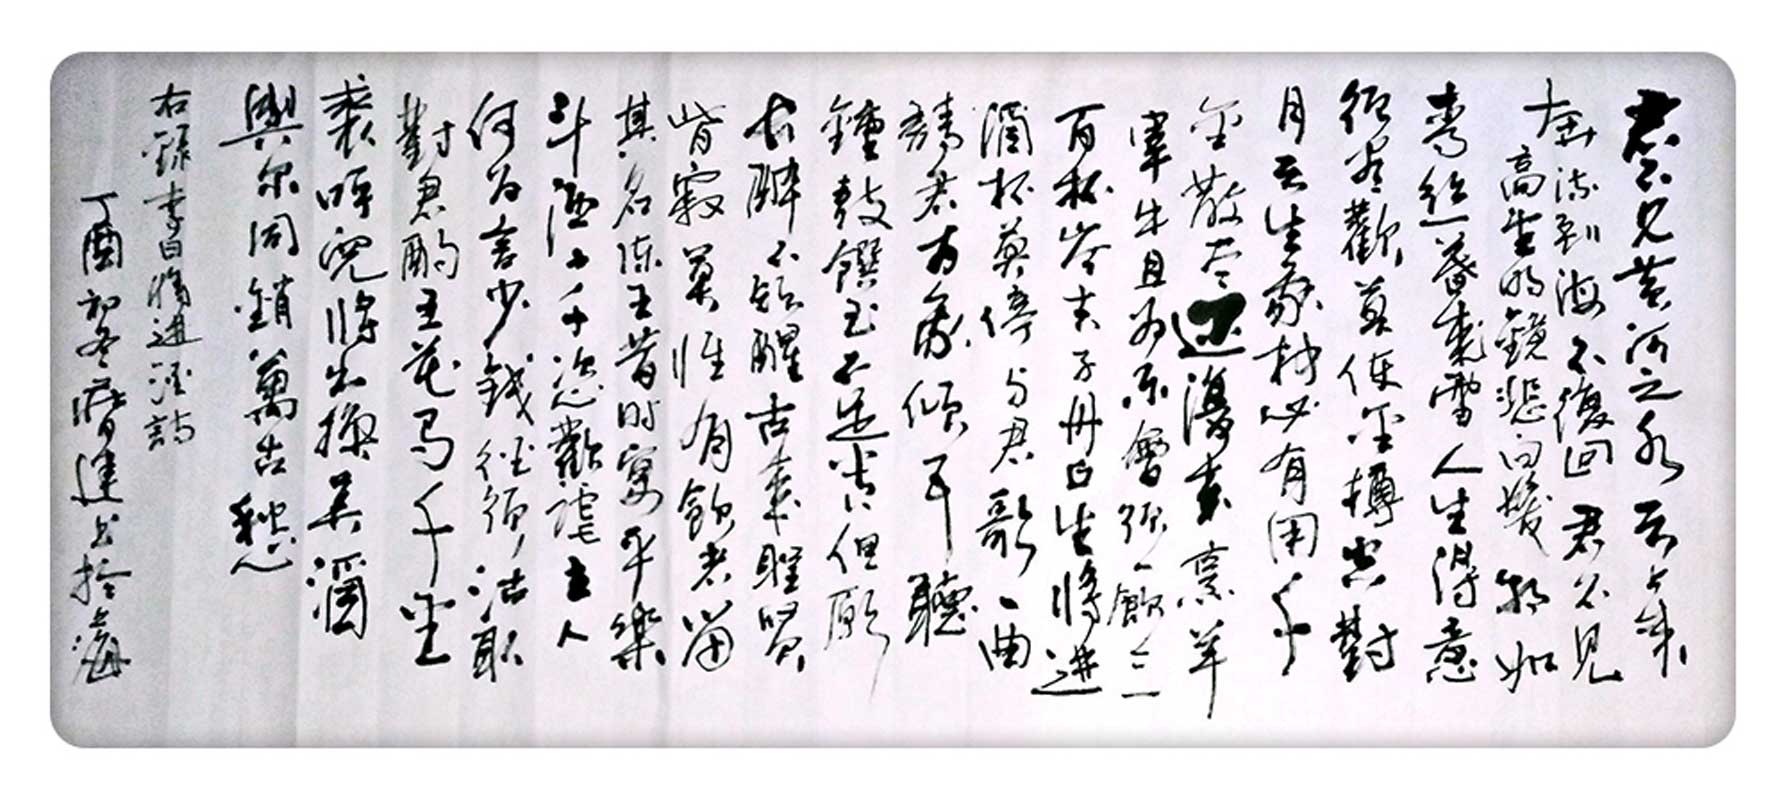 君不见黄河之水天上来
奔流到海不復回君不見
高堂明鏡悲白髮朝如
青丝暮成雪人生得意
须尽歡莫使金樽空對
月天生我材必有用千
金散尽还復来烹羊
宰牛且为乐會须一飲三
百杯岑夫子丹丘生将进
酒杯莫停与君歌一曲
請君为我倾耳聽
鐘鼓饌玉不足贵但願
长醉不願醒古来聖贤
皆寂莫惟有飲者留
其名陈王昔时宴平樂
斗酒十千恣歡谑主人
何为言少錢径须沽取
對君酌五花马千金
裘呼兒将出换美酒
與尔同銷萬古愁
右録李白将进酒詩
丁酉初冬建书於上海